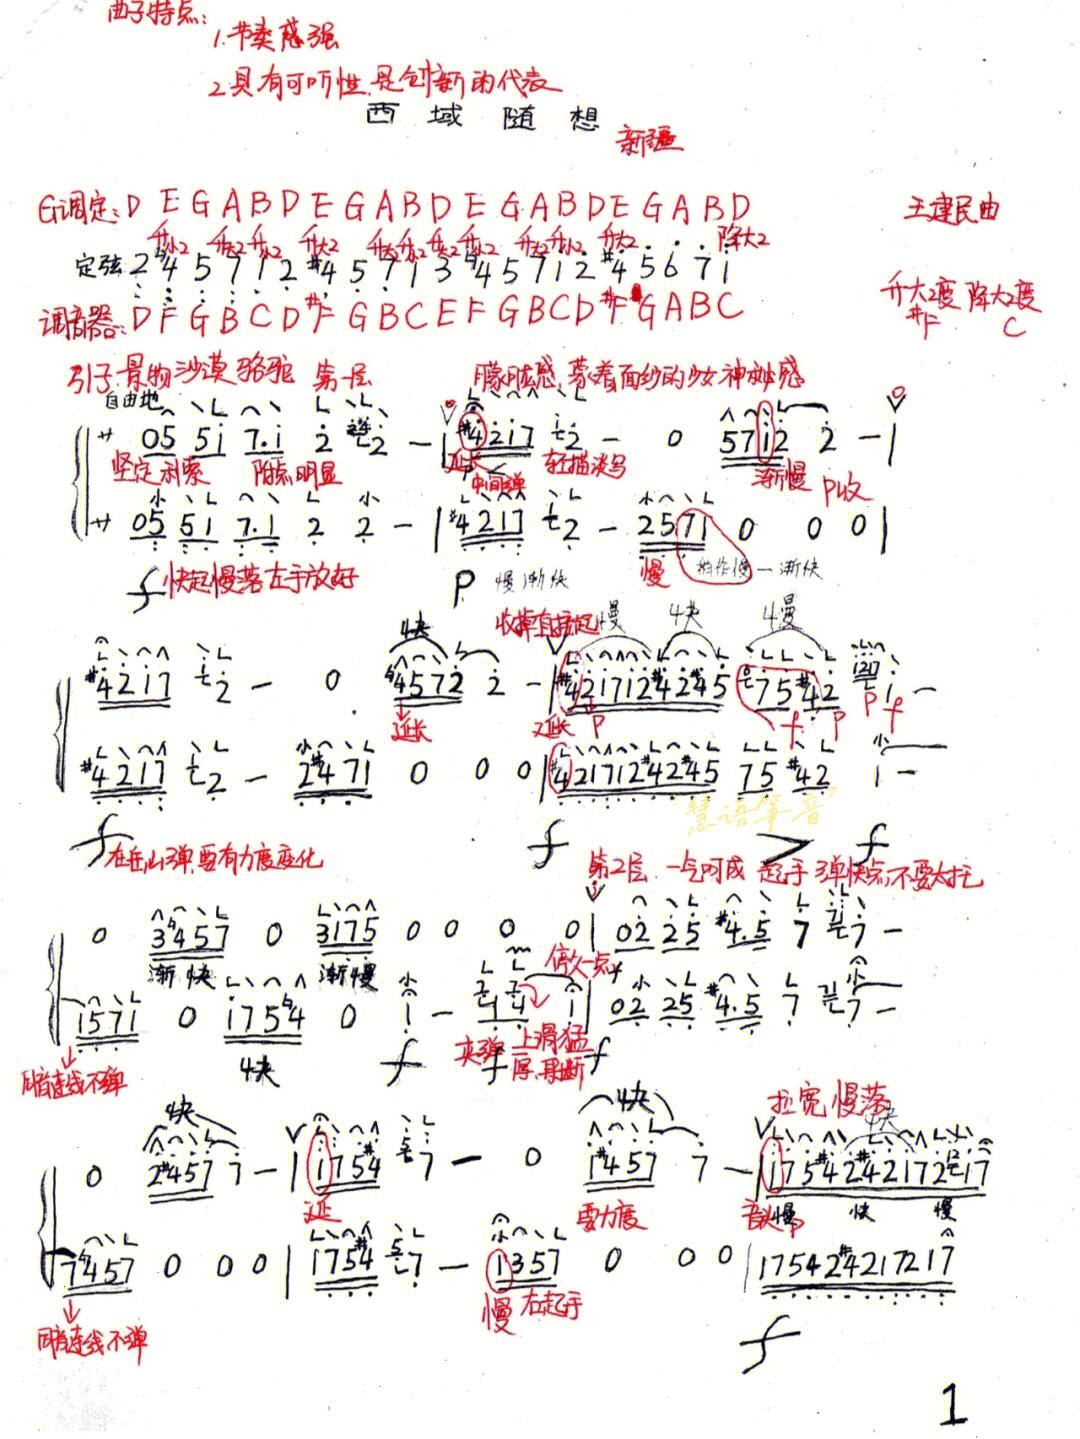 曲子特点:
1.节奏感强
2.具有可听性.是创新的代表
西域随想
新疆
G调定: D E G A B D E G A B D E G A B D E G A B D
王建民曲
升小2 升大2 升小2 升大2 升大2 升小2 升大2 升小2 升大2 升小2 升大2 降大2
定弦 2 ♮4 5 7 1 2 #4 5 7 1 3 ♮4 5 7 1 2 #4 5 6 7 1
升大2度 降大2度
#F C
调音器: D F G B C D #F G B C E F G B C D #F G A B C
引子:景物沙漠骆驼 第一层 朦胧感,蒙着面纱的少女神妙感
自由地
サ 05 51 7.1 2 2 - | #4217 2 - 0 5712 2 - |
坚定利索 附点明显 延长 P 中间弹 轻描淡写 渐慢 P收
サ 05 51 7.1 2 2 - | #4217 2 - 2571 0 0 0 |
f 快起慢落左手放好 P 慢渐快 慢 稍作慢 — 渐快
4快 收掉直接起 4慢 4快 4慢
#4217 2 - 0 ♮4572 2 - | #421712#42#45 75 #42 1 -
延长 延长 P f P P f
#4217 2 - 2#471 0 0 0 | #421712#42#45 75 #42 1 -
慧语筝音
f 在岳山弹,要有力度变化 f > f
第2层.一气呵成 起手弹快点,不要太拖
0 3♮457 0 3175 0 0 0 0 0 | 02 25 #4.5 7 7 -
渐快 渐慢 停久一点
1571 0 175♮4 0 1 - 4 4 1 | 02 25 #4.5 7 7 -
同音连线不弹 4快 f 夹弹 f 上滑猛 厚.果断 f
快 4快 拉宽 慢落
快
0 2#457 7 - | 175#4 7 - 0 1#457 7 - | 175#42#4217217
延 要力度 音头 P 慢 快 慢
7♮457 0 0 0 | 175#4 7 - 1357 0 0 0 | 17542#4217217
同音连线不弹 慢 右起手
f
1